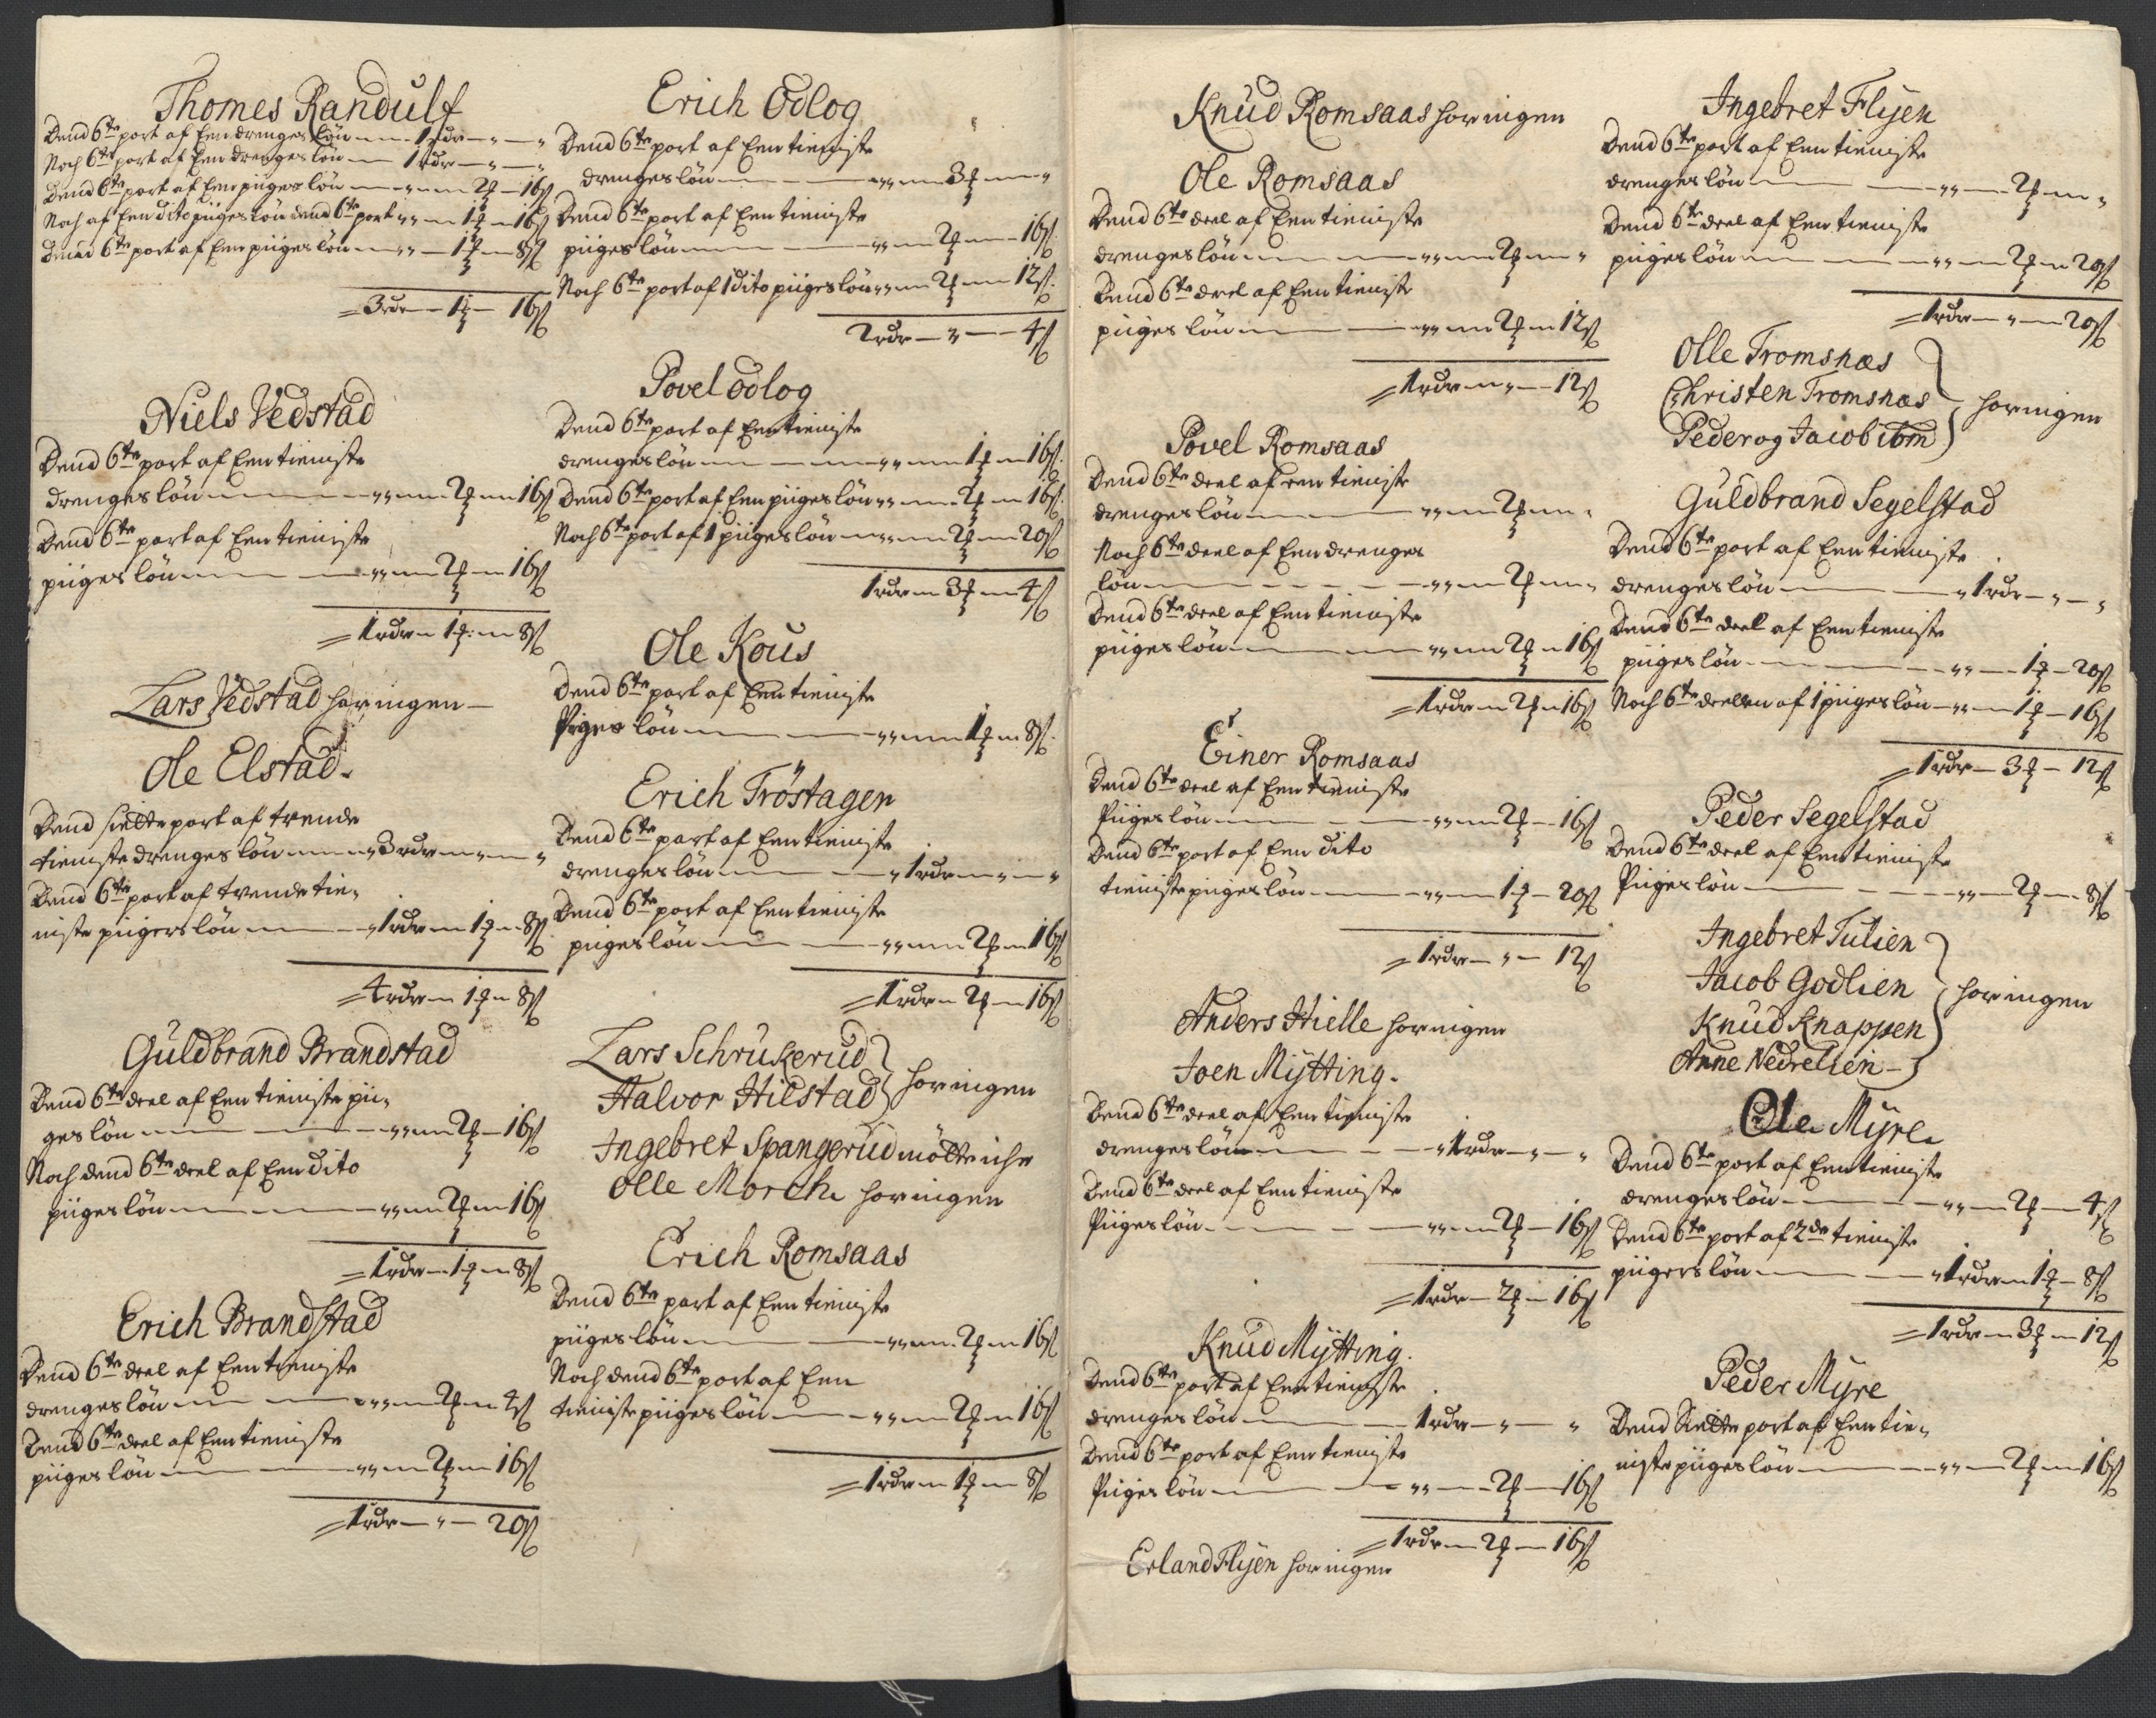 Thomes Randulf
Dend 6te port af Een drenges lön — 1 rdr — " — "
Noch 6te port af Een drenges lön — 1 rdr — " — "
Dend 6te port af Een piiges lön — " — 2 ƺ — 16 ß
Noch af Een dito piiges lön dend 6te port " " — 1 ƺ — 16 ß
Dend 6te port af Een piiges lön — " " — 1 ƺ — 8 ß
= 3 rdr — 1 ƺ — 16 ß
Niels Vedstad
Dend 6te port af Een tieniste
drenges lön — " " — 2 ƺ — 16 ß
Dend 6te port af Een tieniste
piiges lön — " " — 2 ƺ — 16 ß
= 1 rdr — 1 ƺ — 8 ß
Lars Vedstad har ingen —
Ole Elstad.
Dend siette port af trende
tieniste drenges lön — " 3 rdr — " — "
Dend 6te port af trende tie-
niste piigers lön — " 1 rdr — 1 ƺ — 8 ß
= 4 rdr — 1 ƺ — 8 ß
Guldbrand Brandstad
Dend 6te deel af Een tieniste pii-
ges lön — " " — 2 ƺ — 16 ß
Noch dend 6te deel af Een dito
piiges lön — " " — 2 ƺ — 16 ß
= 1 rdr — 1 ƺ — 8 ß
Erich Brandstad
Dend 6te deel af Een tieniste
drenges lön — " " — 2 ƺ — 4 ß
Dend 6te deel af Een tieniste
piiges lön — " " — 2 ƺ — 16 ß
= 1 rdr — " — 20 ß
Erich Odlog
Dend 6te port af Een tieniste
drenges lön — " " — 3 ƺ — "
Dend 6te port af Een tieniste
piiges lön — " " — 2 ƺ — 16 ß
Noch 6te port af 1 dito piiges lön " " — 2 ƺ — 12 ß.
2 rdr — " — 4 ß
Povel Odlog
Dend 6te port af Een tieniste
drenges lön — " " — 1 ƺ — 16 ß.
Dend 6te port af Een piiges lön " " — 2 ƺ — 16 ß.
Noch 6te port af 1 piiges lön — " " — 2 ƺ — 20 ß
1 rdr — 3 ƺ — 4 ß
Ole Kous
Dend 6te port af Een tieniste
Piges lön — " " — 1 ƺ — 8 ß.
Erich Tröstagen
Dend 6te part af Een tieniste
drenges lön — " 1 rdr — " — "
Dend 6te port af Een tieniste
piiges lön — " " — 2 ƺ — 16 ß
= 1 rdr — 2 ƺ — 16 ß
Lars Schrukerud
Halvor Hilstad } har ingen
Ingebret Spangerud mötte iche
Olle Morch har ingen
Erich Romsaas
Dend 6te part af Een tieniste
piiges lön — " " — 2 ƺ — 16 ß
Noch dend 6te port af Een
tieniste piiges lön — " " — 2 ƺ — 16 ß
= 1 rdr — 1 ƺ — 8 ß
Knud Romsaas har ingen
Ole Romsaas
Dend 6te deel af Een tieniste
drenges lön — " " — 2 ƺ — "
Dend 6te deel af Een tieniste
piiges lön — " " — 2 ƺ — 12 ß
= 1 rdr — " — 12 ß
Povel Romsaas
Dend 6te deel af een tieniste
drenges lön — " " — 2 ƺ — "
Noch 6te deel af Een drenges
lön — " " — 2 ƺ — "
Dend 6te deel af Een tieniste
piiges lön — " " — 2 ƺ — 16 ß
= 1 rdr — 2 ƺ — 16 ß
Einer Romsaas
Dend 6te deel af Een tieniste
Piiges lön — " " — 2 ƺ — 16 ß
Dend 6te port af Een dito
tieniste piiges lön — " " — 1 ƺ — 20 ß
= 1 rdr — " — 12 ß
Anders Hielle har ingen
Joen Mytting.
Dend 6te deel af Een tieniste
drenges lön — " 1 rdr — " — "
Dend 6te deel af Een tieniste
Piiges lön — " " — 2 ƺ — 16 ß
= 1 rdr — 2 ƺ — 16 ß
Knud Mytting.
Dend 6te port af Een tieniste
drenges lön — 1 rdr — " — "
Dend 6te port af Een tieniste
Piiges lön — " " — 2 ƺ — 16 ß
= 1 rdr — 2 ƺ — 16 ß
Erland Flyen har ingen
Ingebret Flyen
Dend 6te port af Een tieniste
drenges lön — " " — 2 ƺ — "
Dend 6te deel af Een tieniste
piiges lön — " " — 2 ƺ — 20 ß
= 1 rdr — " — 20 ß
Olle Tromsnæs
Christen Tromsnæs } har ingen
Peder og Jacob ibm
Guldbrand Segelstad
Dend 6te port af Een tieniste
drenges lön — " 1 rdr — " — "
Dend 6te deel af Een tieniste
piiges lön — " " — 1 ƺ — 20 ß
Noch 6te deelen af 1 piiges lön — " " — 1 ƺ — 16 ß
= 1 rdr — 3 ƺ — 12 ß
Peder Segelstad
Dend 6te deel af Een tieniste
Piiges lön — " " — 2 ƺ — 8 ß
Ingebret Tulien
Jacob Godlien } har ingen
Knud Knappen
Anne Nedrelien —
Ole Myre
Dend 6te port af Een tieniste
drenges lön — " " — 2 ƺ — 4 ß
Dend 6te port af 2de tieniste
piigers lön — " 1 rdr — 1 ƺ — 8 ß
= 1 rdr — 3 ƺ — 12 ß
Peder Myre
Dend Siette port af Een tie-
niste piiges lön — " " — 2 ƺ — 16 ß